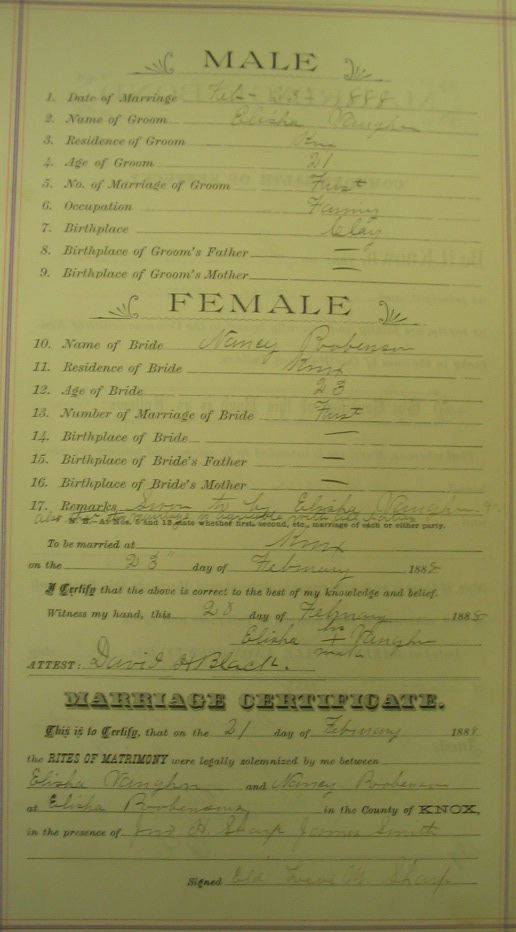 MALE
1. Date of Marriage Feb - 23 - 1888
2. Name of Groom Elisha Vaughn
3. Residence of Groom Knx
4. Age of Groom 21
5. No. of Marriage of Groom First
6. Occupation Farmer
7. Birthplace Clay
8. Birthplace of Groom's Father —
9. Birthplace of Groom's Mother —
FEMALE
10. Name of Bride Nancy Roobenson
11. Residence of Bride Knx
12. Age of Bride 23
13. Number of Marriage of Bride First
14. Birthplace of Bride —
15. Birthplace of Bride's Father —
16. Birthplace of Bride's Mother —
17. Remarks Sworn to by Elisha Vaughn
also the marriage is with
N. B.—At Nos. 5 and 13 state whether first, second, etc., marriage of each or either party.
To be married at Knx
on the 23" day of February 1888
I Certify that the above is correct to the best of my knowledge and belief.
Witness my hand, this 23 day of February 1888
Elisha his + Vaughn
mark
ATTEST: David H Black.
MARRIAGE CERTIFICATE.
This is to Certify, that on the 21 day of February 1888
the RITES OF MATRIMONY were legally solemnized by me between
Elisha Vaughn and Nancy Roobenson
at Elisha Roobensons in the County of KNOX,
in the presence of Jno H. Sharp James Smith
Signed Eld Sharp